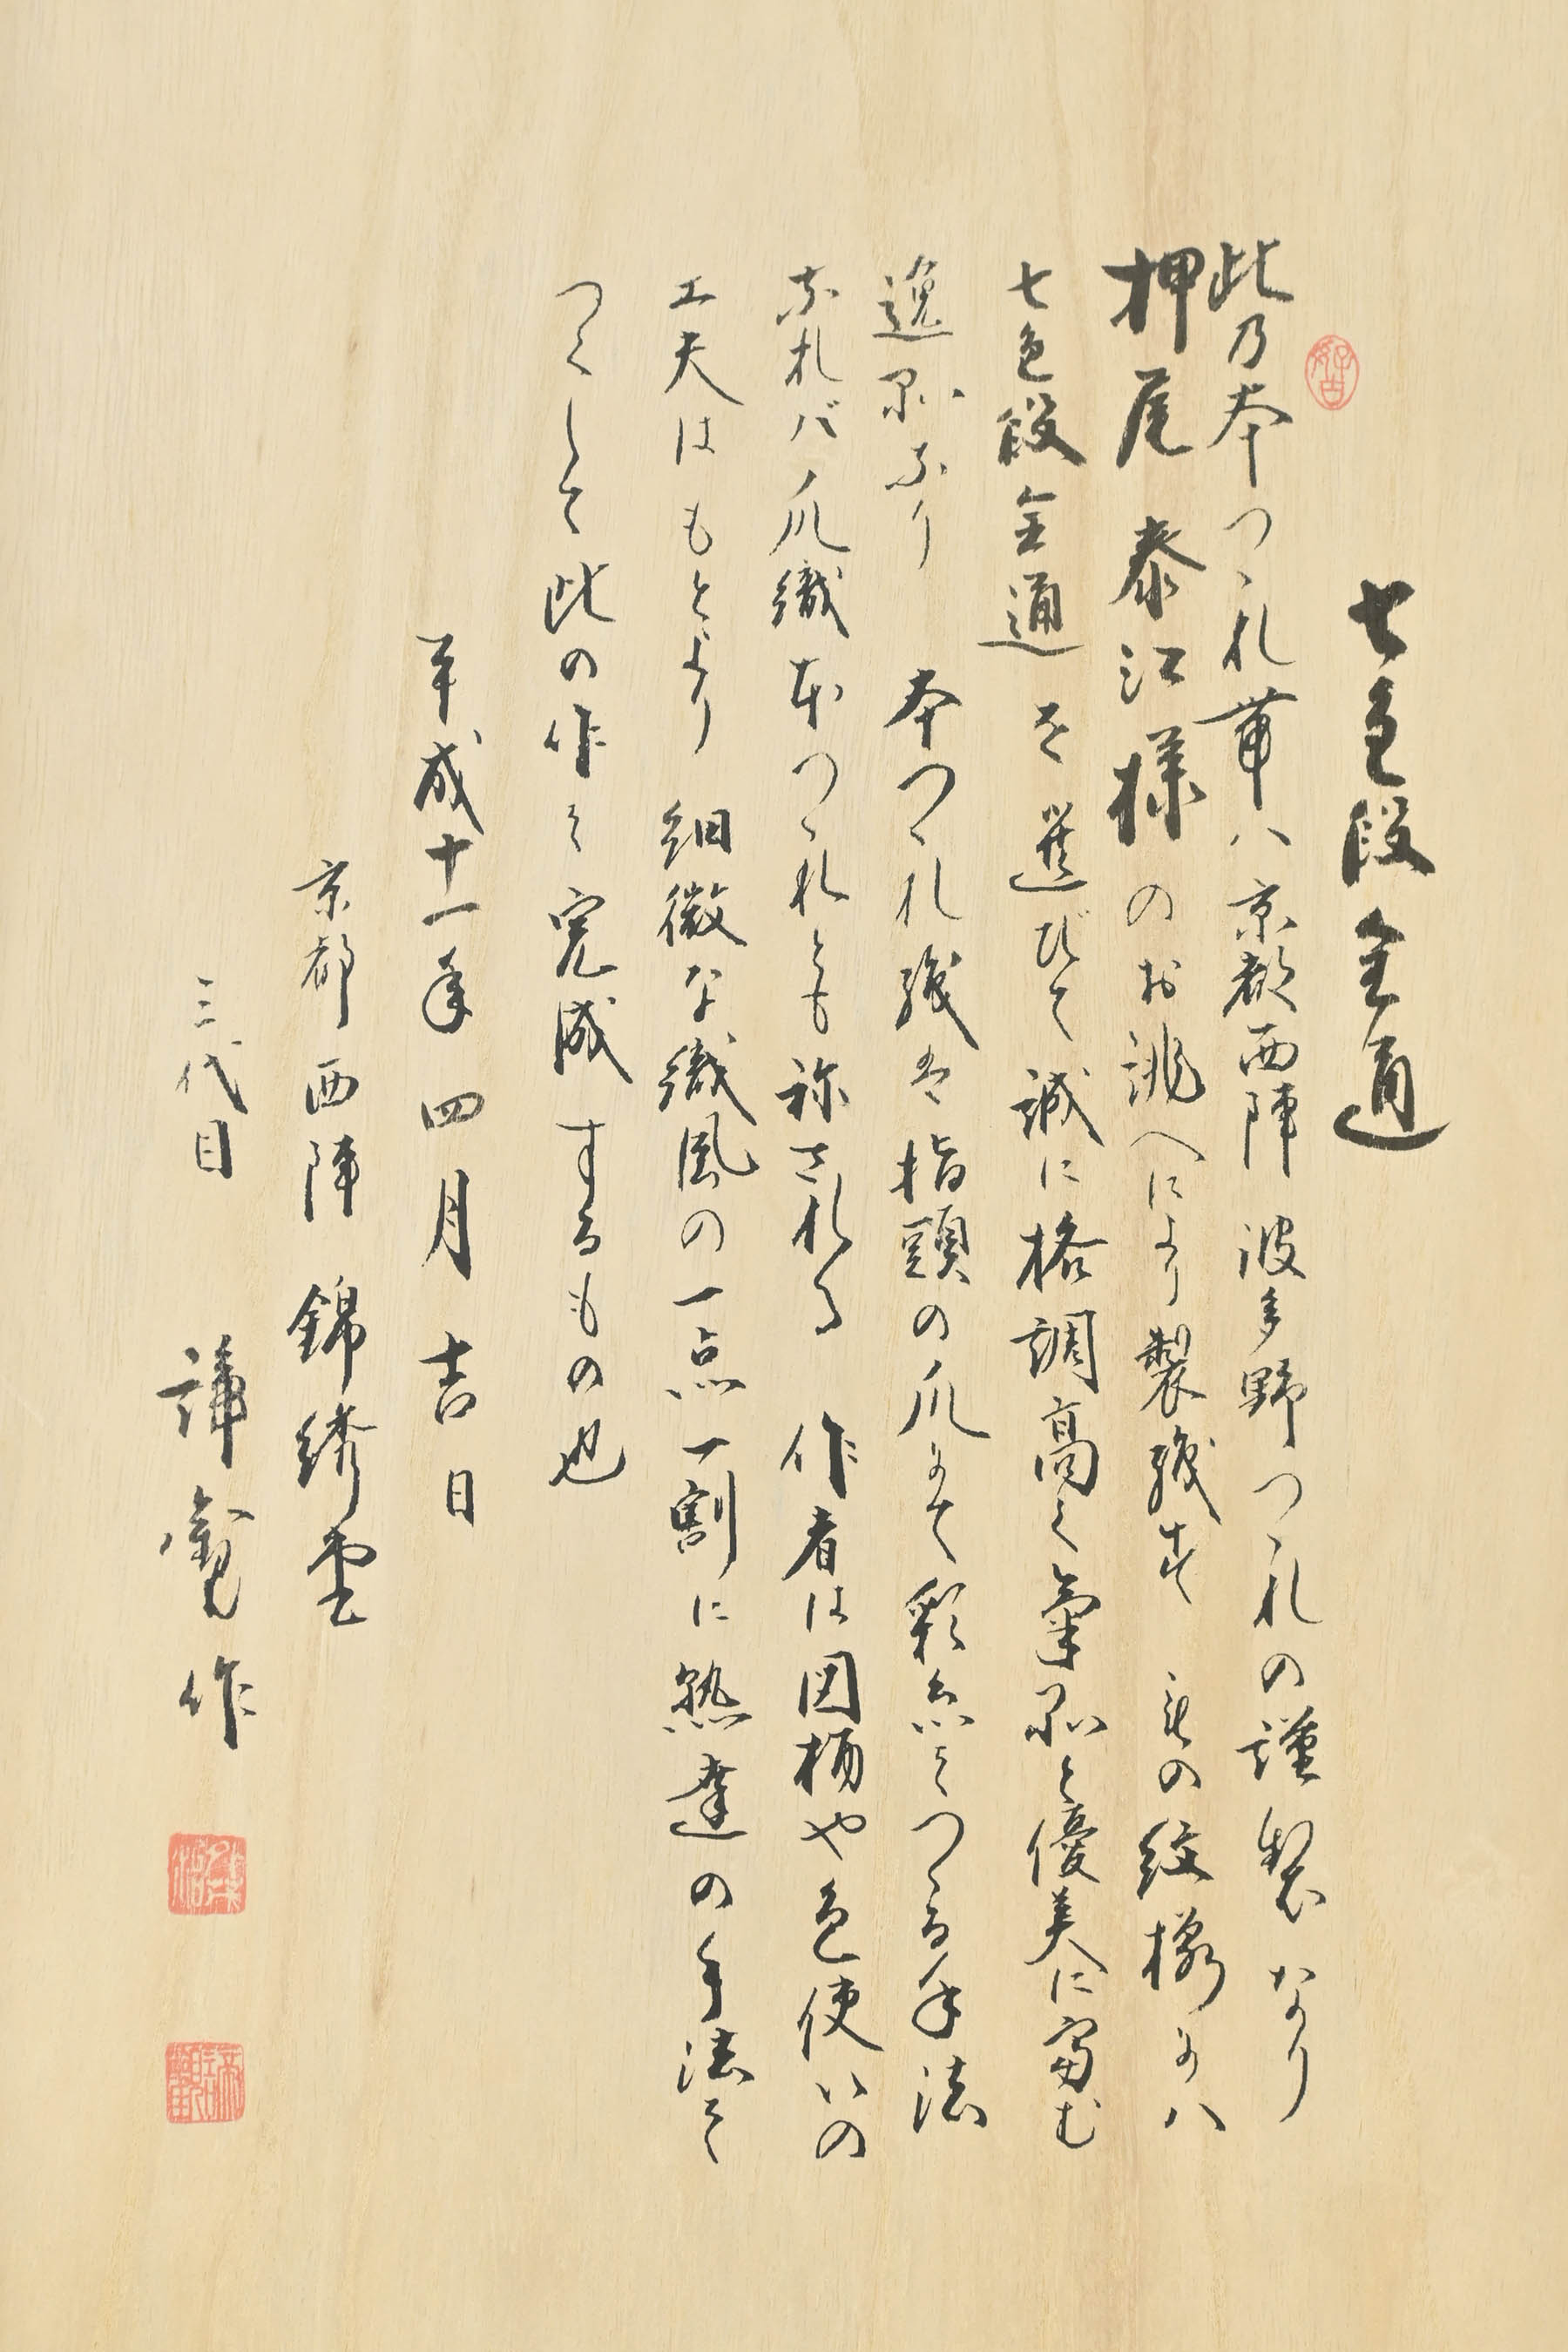 七色段全通
此乃本つゝれ帯ハ京都西陣 波多野つゝれの謹製なり
押尾 泰江様のお誂へにより製織す 其の紋様ハ
七色段全通を選びて誠に格調高く氣品と優美に富む
逸品なり 本つゝれ織は指頭の爪にて彩糸をつゝる手法
なれバ爪織本つゝれとも称される 作者は図柄や色使いの
工夫はもとより 細微な織風の一点一割に熟達の手法を
つくして此の作を完成するもの也
平成十一年四月吉日
京都西陣 錦綉堂
三代目 作